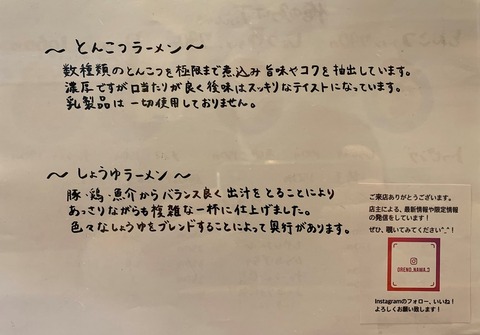 ～ とんこつラーメン ～
数種類のとんこつを極限まで煮込み 旨味やコクを抽出しています。
濃厚ですが口当たりが良く後味はスッキリなテイストになっています。
乳製品は一切使用しておりません。
～ しょうゆラーメン ～
豚・鶏・魚介からバランス良く出汁をとることにより
あっさりながらも複雑な一杯に仕上げました。
色々なしょうゆをブレンドすることによって奥行があります。
ご来店ありがとうございます。
店主による、最新情報や限定情報
の発信をしています！
ぜひ、覗いてみてください^_^！
ORENO_NAWA.3
Instagramのフォロー、いいね！
よろしくお願い致します！